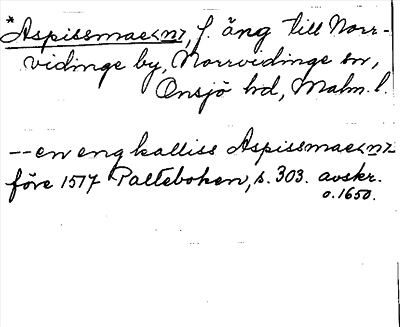 *Aspissmae<n>, f. äng till Norr-
vidinge by, Norrvidinge sn,
Onsjö hd, Malm. l.
--en eng kalliss Aspissmae<n>
före 1517 Palteboken, s. 303. avskr.
o. 1650.